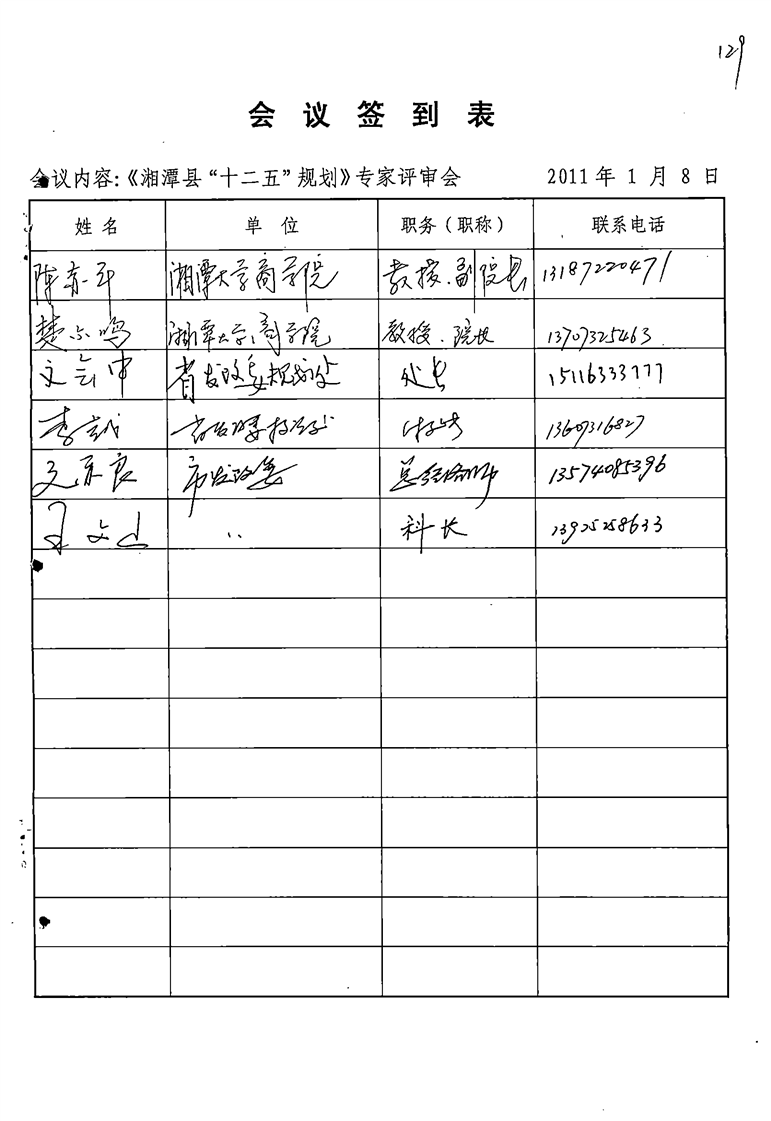 129
会议签到表
会议内容:《湘潭县“十二五”规划》专家评审会 2011年1月8日
姓名 单位 职务(职称) 联系电话
湘潭大学商学院 教授、副院长 13187220471
楚尔鸣 湘潭大学商学院 教授、院长 13707325463
文会中 省发改委规划处 处长 15116333777
李 13607316827
文 良 市发改委 总经济师 13574085396
王文山 〃 科长 13925258633